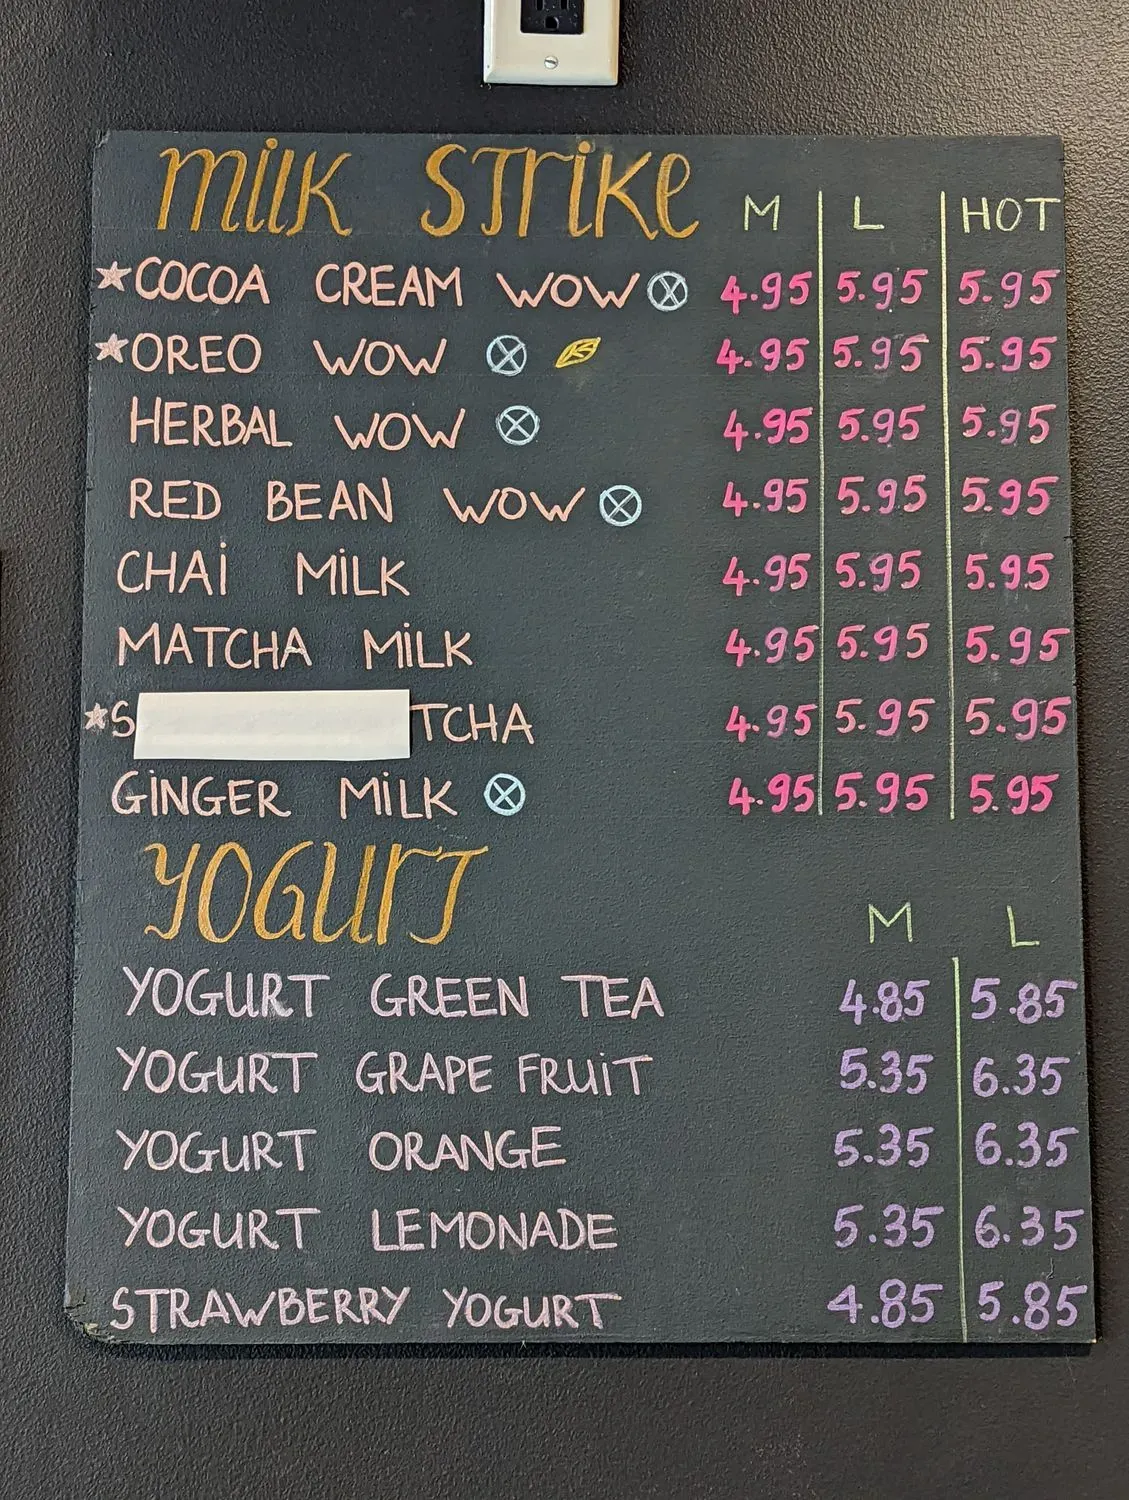 MILK STRIKE M L HOT
COCOA CREAM WOW 4.95 5.95 5.95
OREO WOW 4.95 5.95 5.95
HERBAL WOW 4.95 5.95 5.95
RED BEAN WOW 4.95 5.95 5.95
CHAI MILK 4.95 5.95 5.95
MATCHA MILK 4.95 5.95 5.95
4.95 5.95 5.95
GINGER MILK 4.95 5.95 5.95
YOGURT M L
YOGURT GREEN TEA 4.85 5.85
YOGURT GRAPE FRUIT 5.35 6.35
YOGURT ORANGE 5.35 6.35
YOGURT LEMONADE 5.35 6.35
STRAWBERRY YOGURT 4.85 5.85